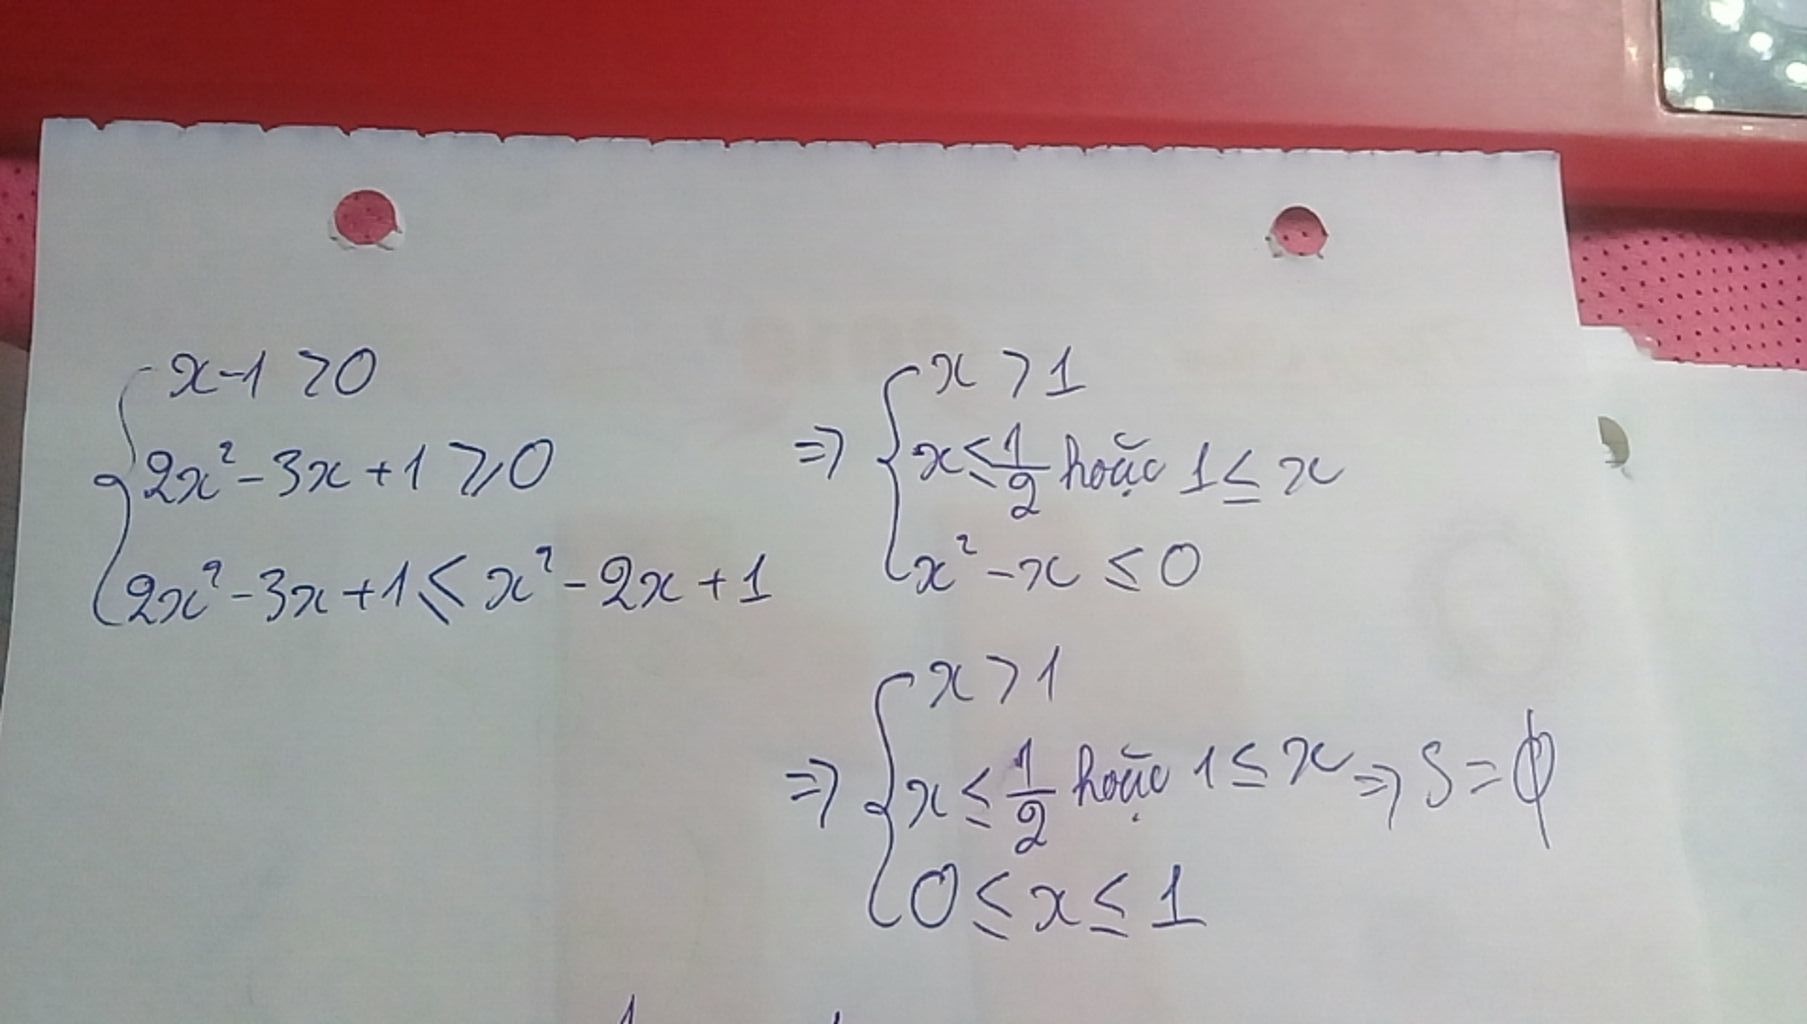 x-1 >0
2x²-3x+1 ≥0
2x²-3x+1 ≤ x²-2x+1
=> x > 1
x ≤ 1/2 hoặc 1 ≤ x
x²-x ≤ 0
=> x > 1
x ≤ 1/2 hoặc 1 ≤ x => S = ϕ
0 ≤ x ≤ 1